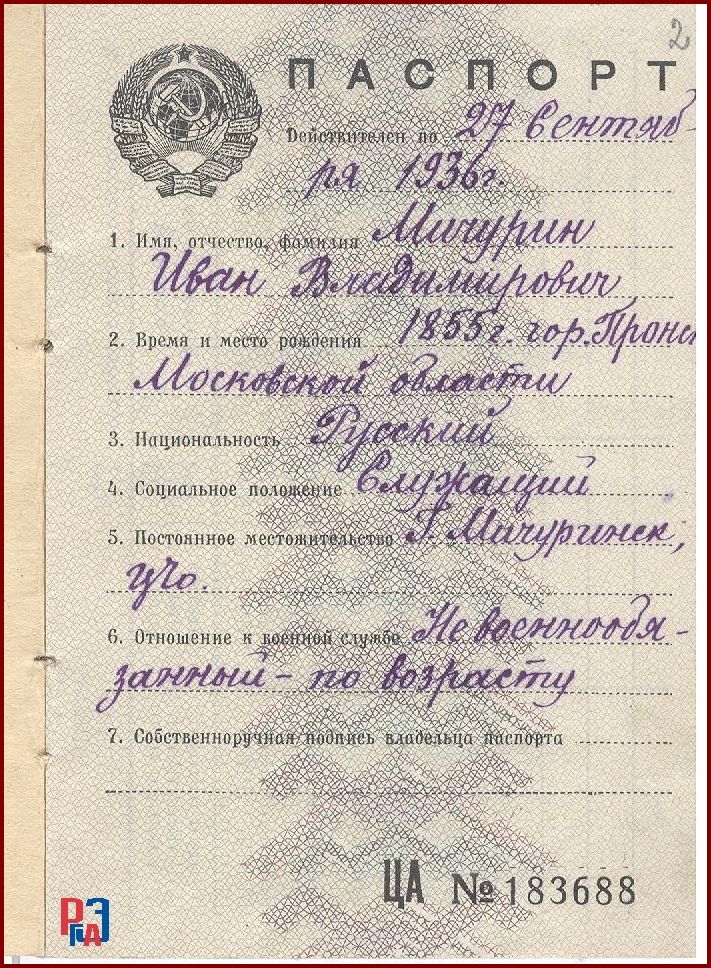 2
ПАСПОРТ
Действителен по 27 Сентяб-
ря 1936г.
1. Имя, отчество, фамилия Мичурин
Иван Владимирович
2. Время и место рождения 1855г. гор. Пронск
Московской области
3. Национальность Русский
4. Социальное положение Служащий
5. Постоянное местожительство г. Мичуринск,
ЦЧО.
6. Отношение к военной службе Не военнообя-
занный - по возрасту
7. Собственноручная подпись владельца паспорта
ЦА № 183688
РГАЭ